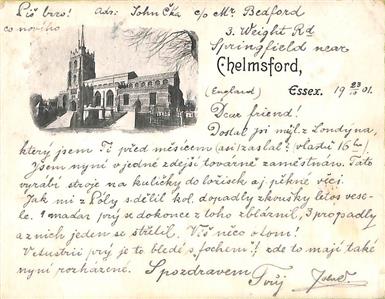 Piš brzo! Adr: John Čka c/o Mr. Bedford
co nového 3. Weight Rd
Springfield near
Chelmsford,
(England) Essex. 19 23/IX 01.
Dear friend!
Dostal jsi můj l. z Londýna,
který jsem Ti před měsícem (asi) zaslal?
Jsem nyní v jedné zdejší továrně zaměstnán. Tato
vyrábí stroje na kuličky do ložisek aj pěkné věci.
Jak mi z Póly sdělil kol. dopadly zkoušky letos vese-
le. 1 maďar prý se dokonce z toho zbláznil, 3 propadly
a z nich jeden se střelil. Víš něco o tom!
V Austrii prý je to bledé s "fochem"! zde to mají také
nyní rozházené. S pozdravem
Tvůj John Č.